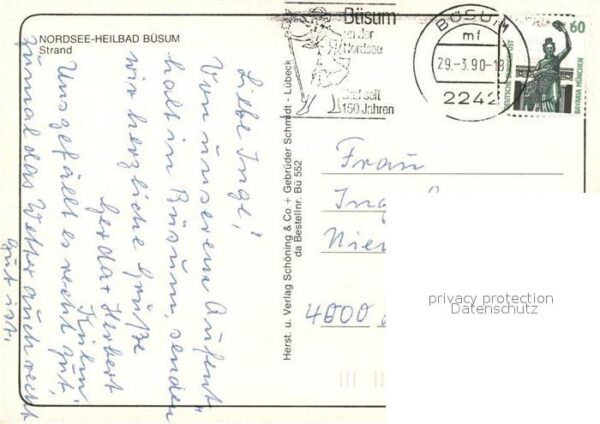 NORDSEE-HEILBAD BÜSUM
Strand
Liebe Inge!
Von unserem Aufent-
halt in Büsum, senden
wir herzliche Grüße
Gerda + Herbert
Kühn
Uns gefällt es recht gut,
zumal das Wetter auch recht
gut ist.
Herst. u. Verlag Schöning & Co + Gebrüder Schmidt - Lübeck
da Bestellnr. Bü 552
Büsum
an der
Nordsee
Bad seit
150 Jahren
BÜSUM
mf
29.-3.90-18
2242
60
DEUTSCHE BUNDESPOST
BAVARIA MÜNCHEN
Frau
Ing
Nien
4000
privacy protection
Datenschutz